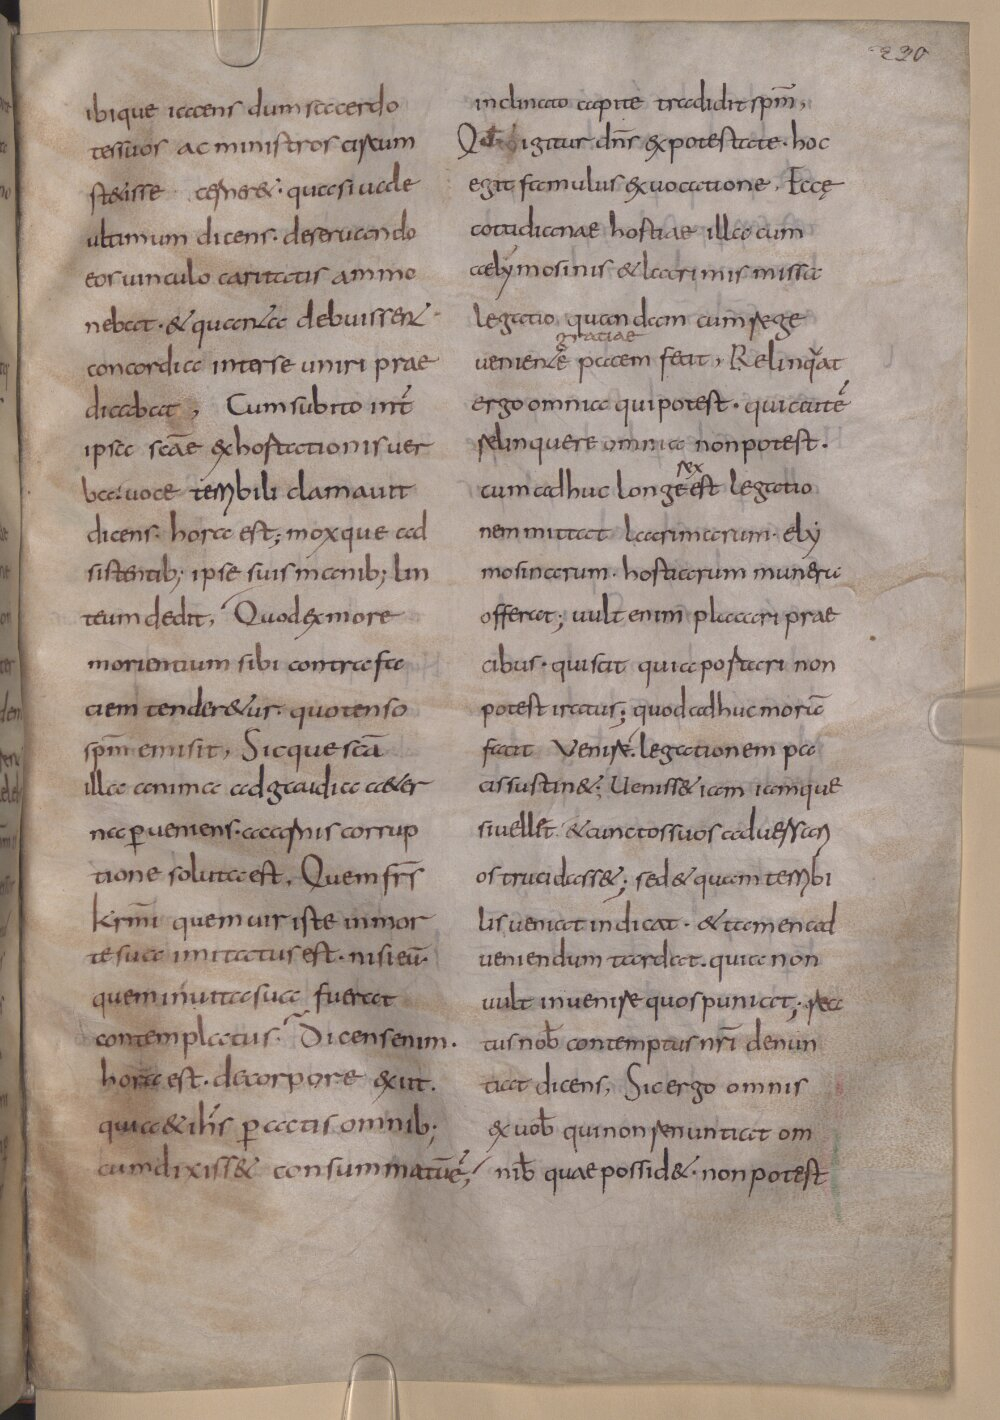 230
ibique iacens dum sacerdo
tes suos ac ministros circum
stetisse cerneret · quasi uale
ultimum dicens · deseruando
eos uinculo caritatis ammo
nebat · & quanta debuissent
concordia inter se uniri prae
dicabat, Cum subito int̄
ipsa sc̄ae exhortationis uer
ba · uoce terribili clamauit
dicens · hora est; moxque ad
sistentib; ipse suis manib; lin
teum dedit, Quod ex more
morientium sibi contra fa
ciem tenderetur · quo tenso
sp̄m emisit, Sicque sc̄a
illa anima ad gaudia aeter
na p̄ueniens · a carnis corrup
tione soluta est, Quem fr̄s
kr̄mi quem uir iste in mor
te sua imitatus est · nisi eū ·
quem in uita sua fuerat
contemplatus · Dicens enim ·
hora est · de corpore exiit ·
quia & ih̄s p̄actis omnib;
cum dixisset consummatū ē,
inclinato capite tradidit sp̄m,
Qd̄ igitur dn̄s ex potestate · hoc
egit famulus ex uocatione, Eccę
cottidianae hostiae illa cum
aelymosinis & lacrimis missa
legatio quandam cum rege
gratiae
veniente pacem fecit, Relinquat
ergo omnia qui potest · qui autē
relinquere omnia non potest ·
rex
cum adhuc longe est legatio
nem mittat lacrimarum · ely
mosinarum · hostiarum munera
offerat; uult enim placari prae
cibus · qui scit quia portari non
potest iratus; quod adhuc morā
facit venire · legationem pa
cis sustinet; Uenisset iam iamque
si uellet · & cunctos suos aduersari
os trucidasset; sed & quam terribi
lis ueniat indicat · & tamen ad
ueniendum tardat · quia non
uult inuenire quos puniat; rea
tus nob̄ contemptus nr̄i denun
tiat dicens, Sic ergo omnis
ex uob̄ qui non renuntiat om
nib̄ quae possidet · non potest